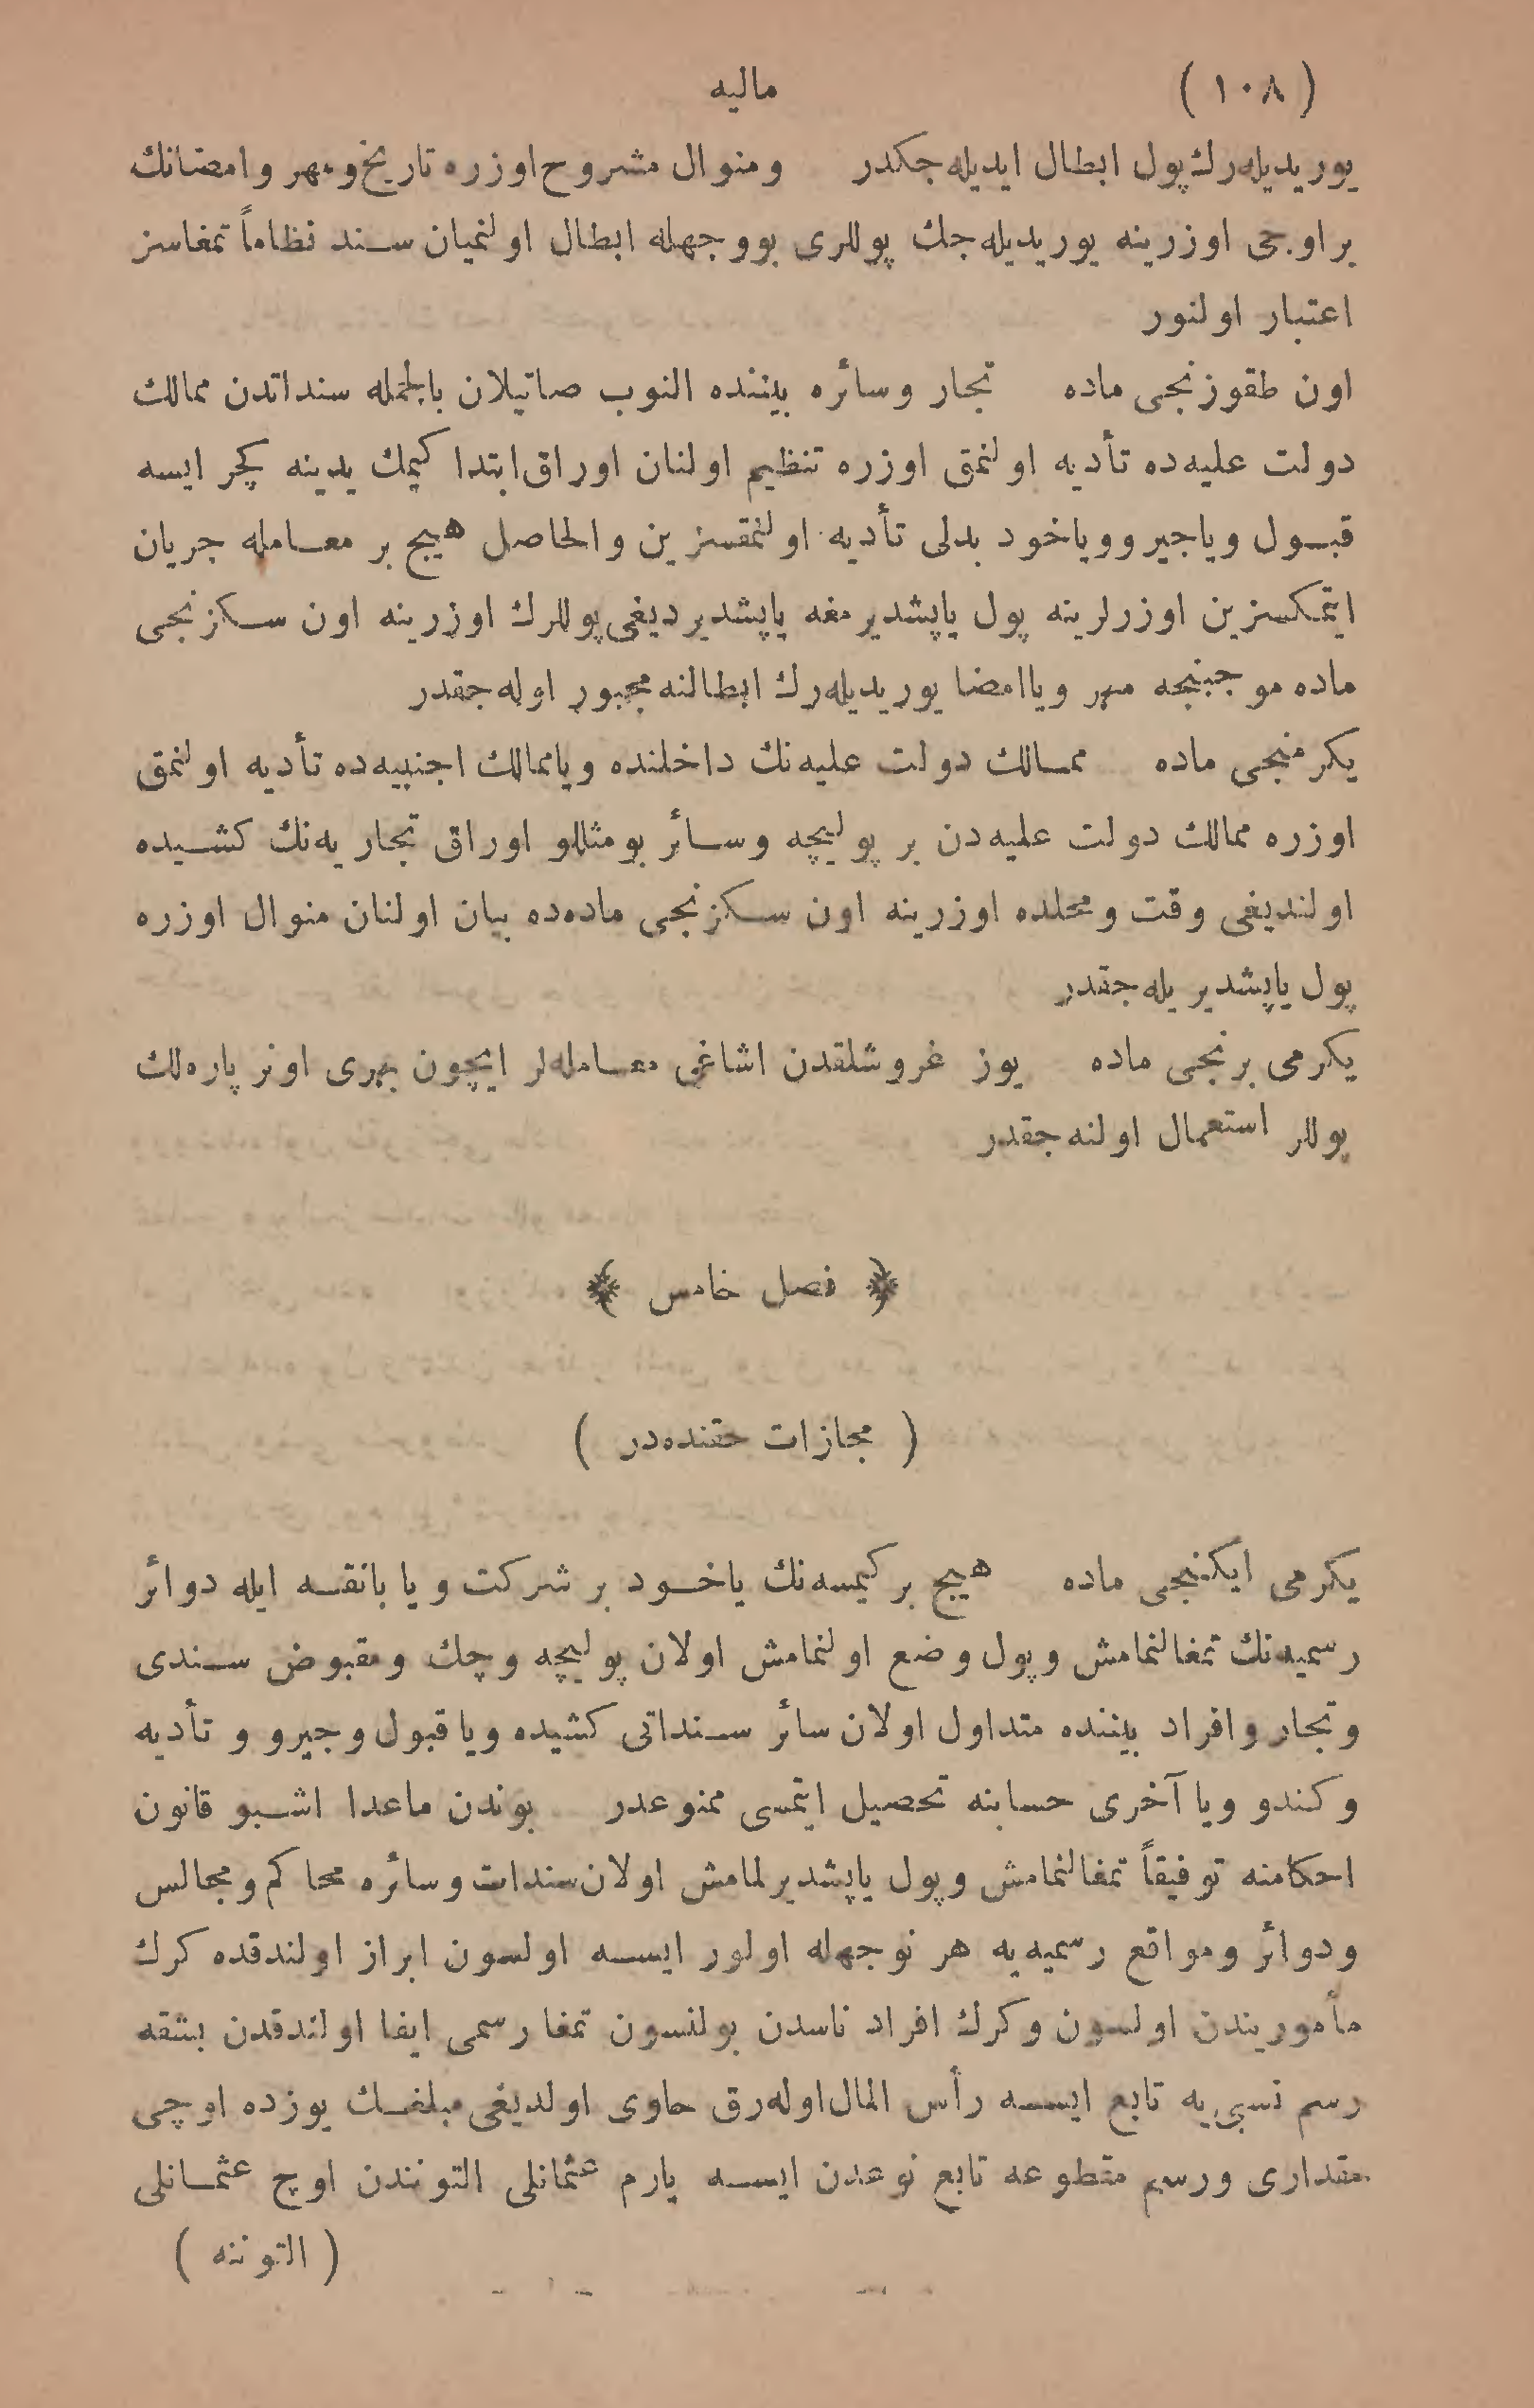 (١٠٨) ماليه
يوريديله‌رك پول ابطال ايديله‌جكدر ومنوال مشروح اوزره تاريخ ومهر وامضانك
بر اوجى اوزرينه يوريديله‌جك پوللرى بووجهله ابطال اولنميان سند نظاماً تمغاسز
اعتبار اولنور
اون طقوزنجى ماده تجار وسائره بيننده النوب صاتيلان بالجمله سنداتدن ممالك
دولت عليه‌ده تأديه اولنمق اوزره تنظيم اولنان اوراق ابتدا كيمك يدينه كچر ايسه
قبول وياجيرو وياخود بدلى تأديه اولنمقسزين والحاصل هيچ بر معامله جريان
ايتمكسزين اوزرلرينه پول ياپشديرمغه ياپشديرديغى پوللرك اوزرينه اون سكزنجى
ماده موجبنجه مهر وياامضا يوريديله‌رك ابطالنه مجبور اوله‌جقدر
يكرمنجى ماده ممالك دولت عليه‌نك داخلنده وياممالك اجنبيه‌ده تأديه اولنمق
اوزره ممالك دولت عليه‌دن بر پوليچه وسائر بومثللو اوراق تجاريه‌نك كشيده
اولنديغى وقت ومحلده اوزرينه اون سكزنجى ماده‌ده بيان اولنان منوال اوزره
پول ياپشديريله‌جقدر
يكرمى برنجى ماده يوز غروشلقدن اشاغى معامله‌لر ايچون بهرى اونر پاره‌لك
پوللر استعمال اولنه‌جقدر
﴿ فصل خامس ﴾
( مجازات حقنده‌در )
يكرمى ايكنجى ماده هيچ بر كيمسه‌نك ياخود بر شركت ويا بانقه ايله دوائر
رسميه‌نك تمغالنمامش وپول وضع اولنمامش اولان پوليچه وچك ومقبوض سندى
وتجار وافراد بيننده متداول اولان سائر سنداتى كشيده ويا قبول وجيرو و تأديه
وكندو ويا آخرى حسابنه تحصيل ايتمسى ممنوعدر بوندن ماعدا اشبو قانون
احكامنه توفيقاً تمغالنمامش وپول ياپشديرلمامش اولان سندات وسائره محاكم ومجالس
ودوائر ومواقع رسميه‌يه هر نوجهله اولور ايسه اولسون ابراز اولندقده كرك
مأموريندن اولسون وكرك افراد ناسدن بولنسون تمغا رسمى ايفا اولندقدن بشقه
رسم نسبى‌يه تابع ايسه رأس المال اوله‌رق حاوى اولديغى مبلغك يوزده اوچى
مقدارى ورسم مقطوعه تابع نوعدن ايسه يارم عثمانلى التونندن اوچ عثمانلى
( التوننه )